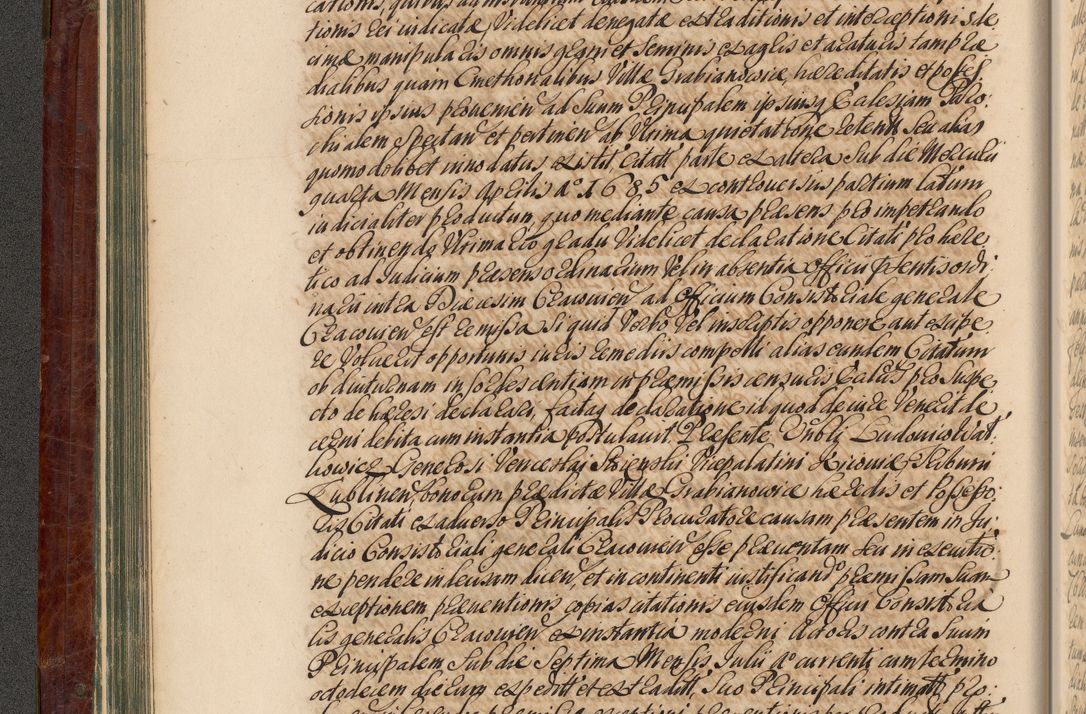 tionis rei iudicatæ, Videlicet denegatæ extraditionis et interceptionis de
cimæ manipularis omnis grani et seminis ex agris et araturis tam præ
dialibus quam Cmethonalibus Villæ Grabianowicæ hæreditatis et posses
sionis ipsius provenien ad Suum Principalem ipsiusq Ecclesiam Paro:
chialem Spectan et pertinen ab Ultima quietatione retent Seu alias
quomodolibet in datis exist, Citati parte ex altera Sub die Mercurii
quarta Mensis Aprilis aº 1685 ex controversiis partium Latum
iudicialiter productum, quo mediante causa præsens pro impetrando
et obtinendo Ultimario gradu Videlicet declaratione Citati pro hære
tico ad Iudicium præsens ordinarium Vel in absentia Officii pſentis ordi
narii intra Diæcesim Cracovien ad Officium Consistoriale generale
Cracovien est remissa Si quid Verbo Vel in scriptis opponere aut excipe
re Voluerit opportunis iuris remediis compelli alias eundem Citatum
ob diuturnam in sordescentiam in præmissis censuris Ecclis pro suspe
cto de hæresi declarari, factaq declaratione id quod de iure Venerit de
cerni debita cum instantia postulavit. Præsente Nobli Ludovico Wat
howicz Generosi Venceslai Vicepalatini Kiioviæ
Lublinen bonorum prædictæ Villæ Grabianowicæ hæredis et Possesso:
ris Citati ex adverso Principalis Procuratore causam præsentem in Iu:
dicio Consistoriali generali Cracovien esse præventam seu in executio
ne pendere in leusam ducen et incontinenti iustificando præmissam suam
exceptionem præventionis copias citationis eiusdem Officii Consistoria
lis generalis Cracovien ex instantia moderni Actoris contra Suum
Principalem Sub die Septima Mensis Iulii aº currenti cum termino
ododecem dierum expedit et extradit, Suo Principali intimat, pro: